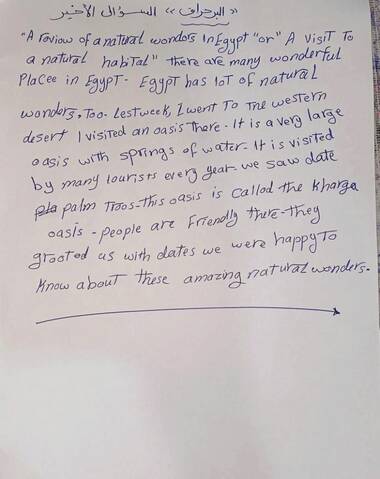 « البرجراف » السؤال الأخير
"A review of a natural wonders In Egypt "or" A visit To
a natural habital" there are many wonderful
Placee in Egypt- Egypt has lot of natural
wonders, Too- Lestweek, I went To The western
desert I visited an oasis there- It is a very large
oasis with springs of water- It is visited
by many tourists every year- we saw date
palm Trees-this oasis is called the kharga
oasis - people are Friendly there-they
greeted us with dates we were happy To
Know about these amazing natural wonders.